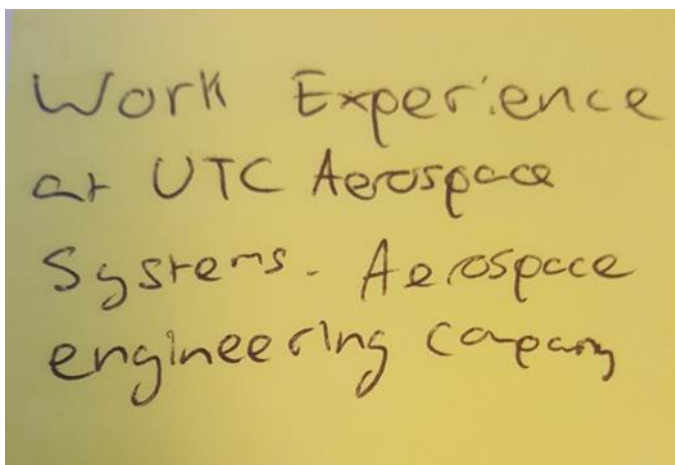 Work Experience
at UTC Aerospace
Systems. Aerospace
engineering company